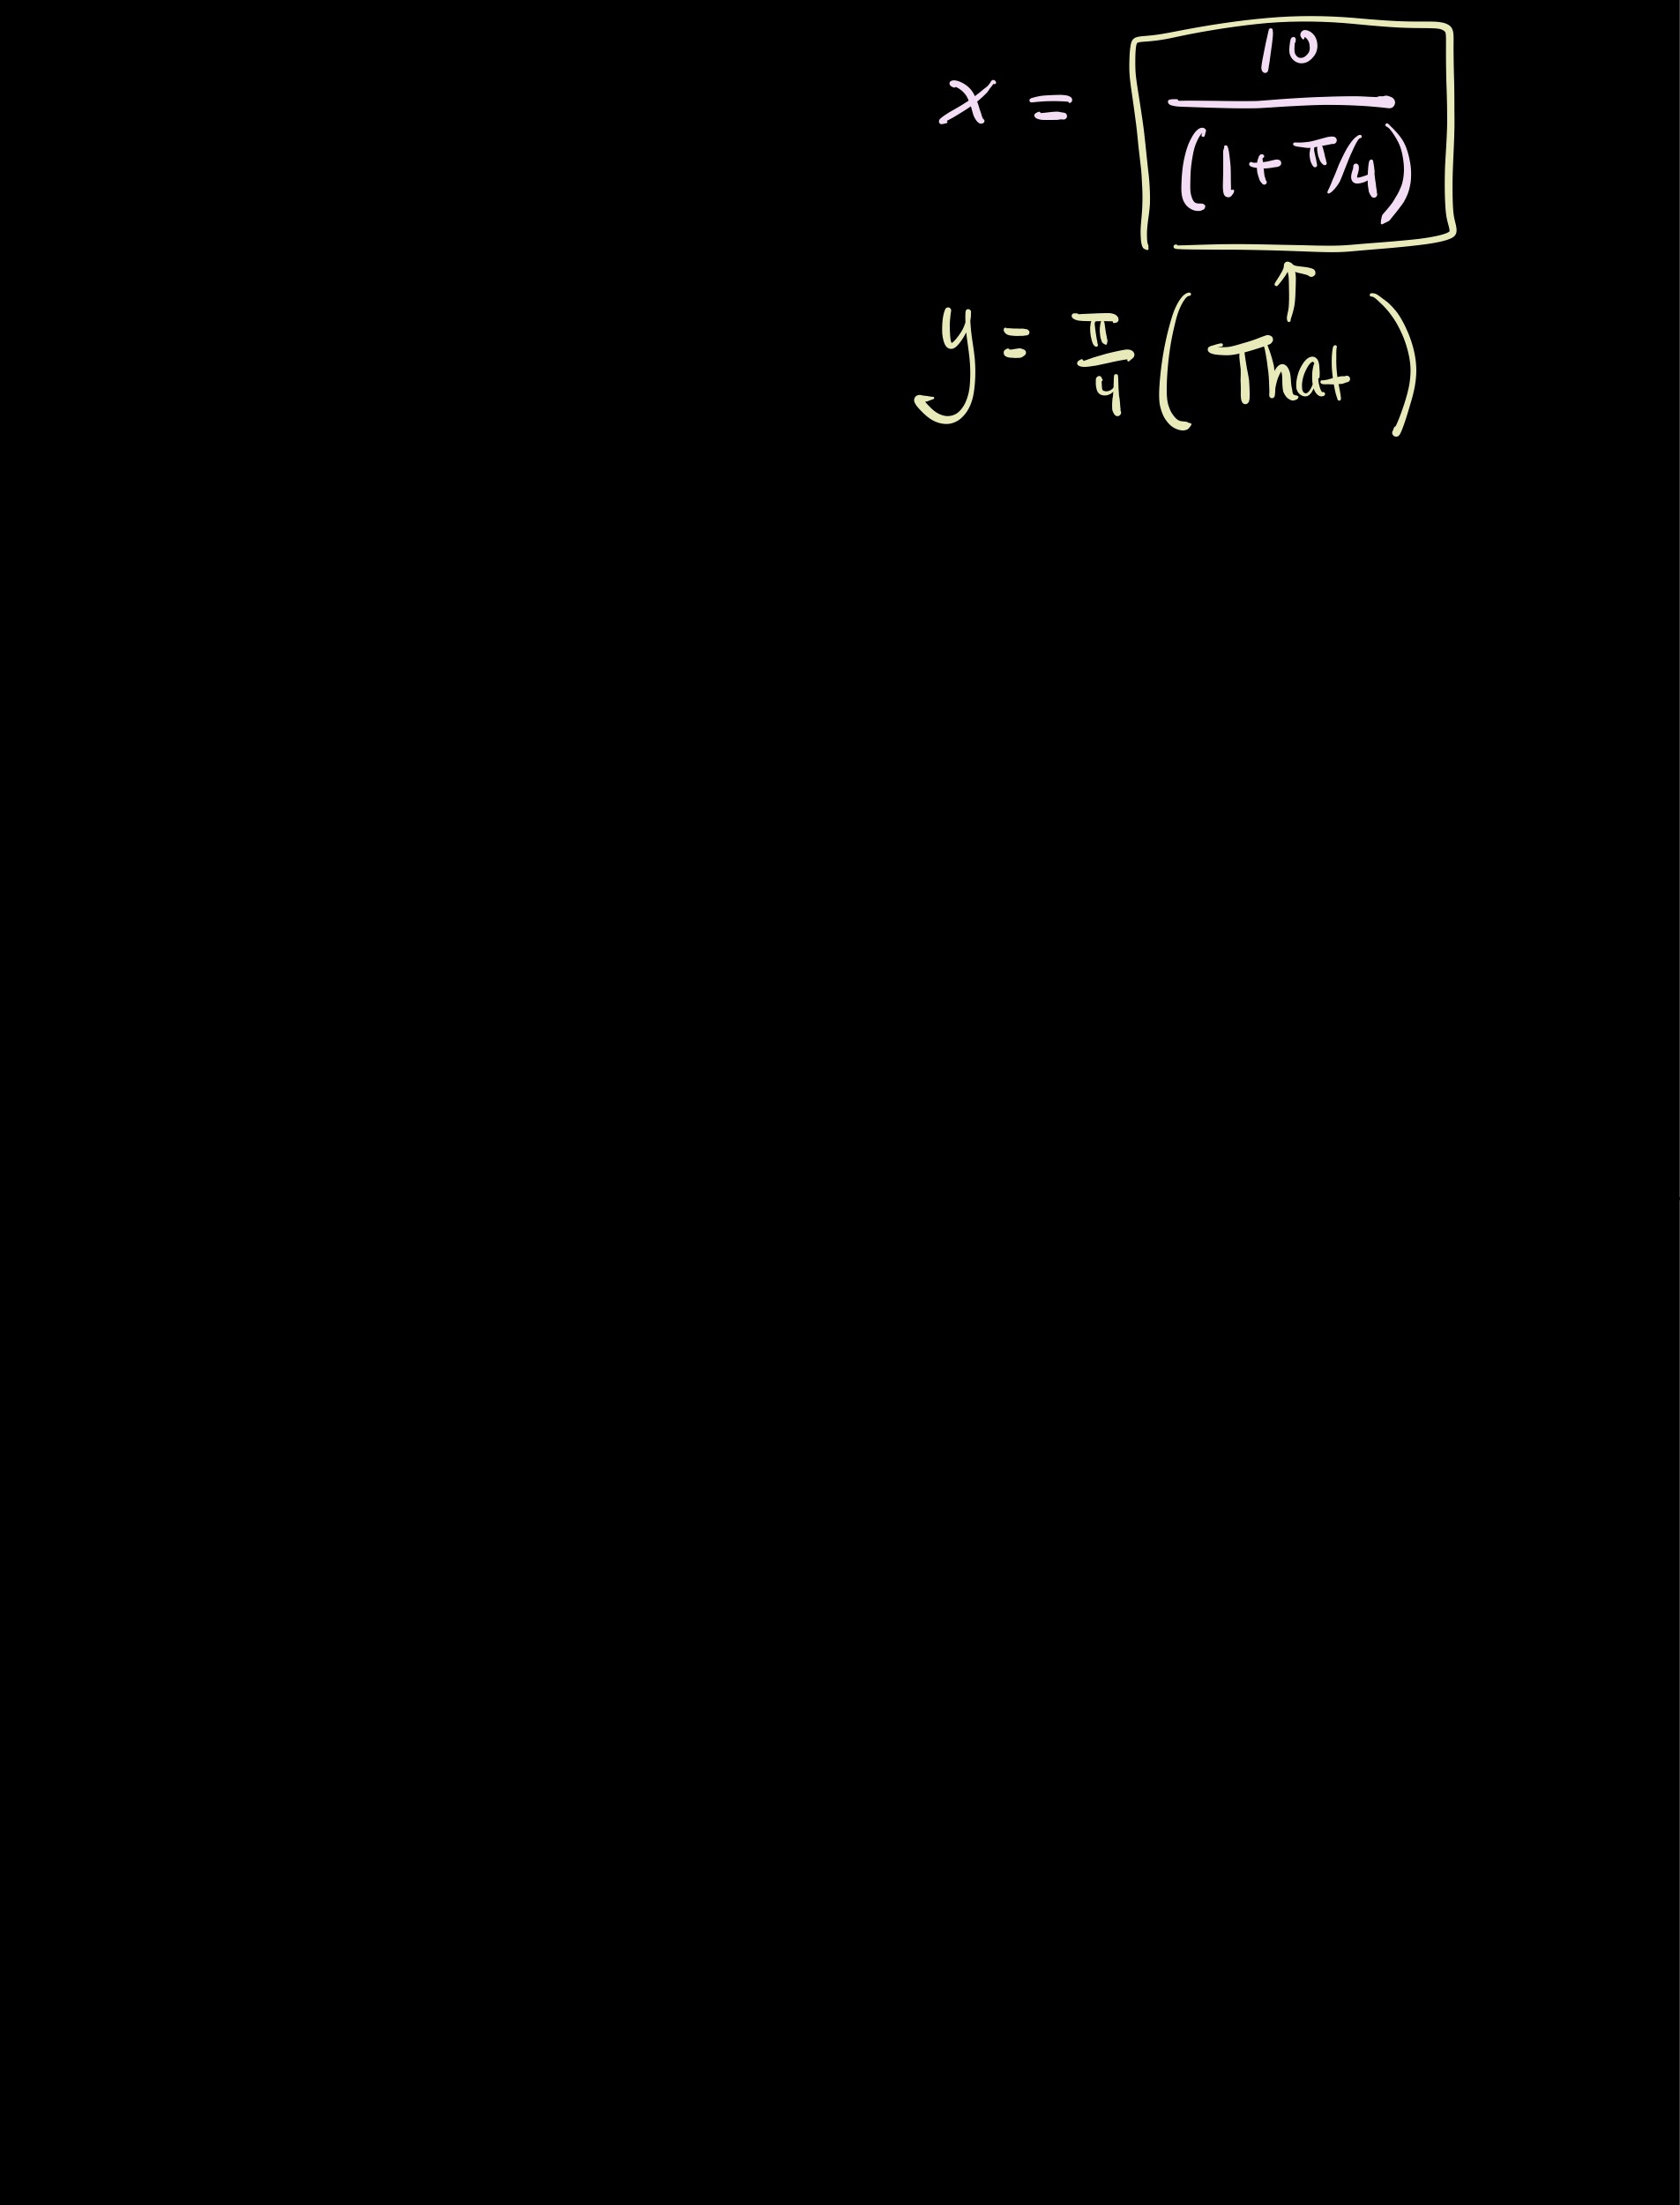 x = 10 / (1 + π/4)
y = π/4 (That)